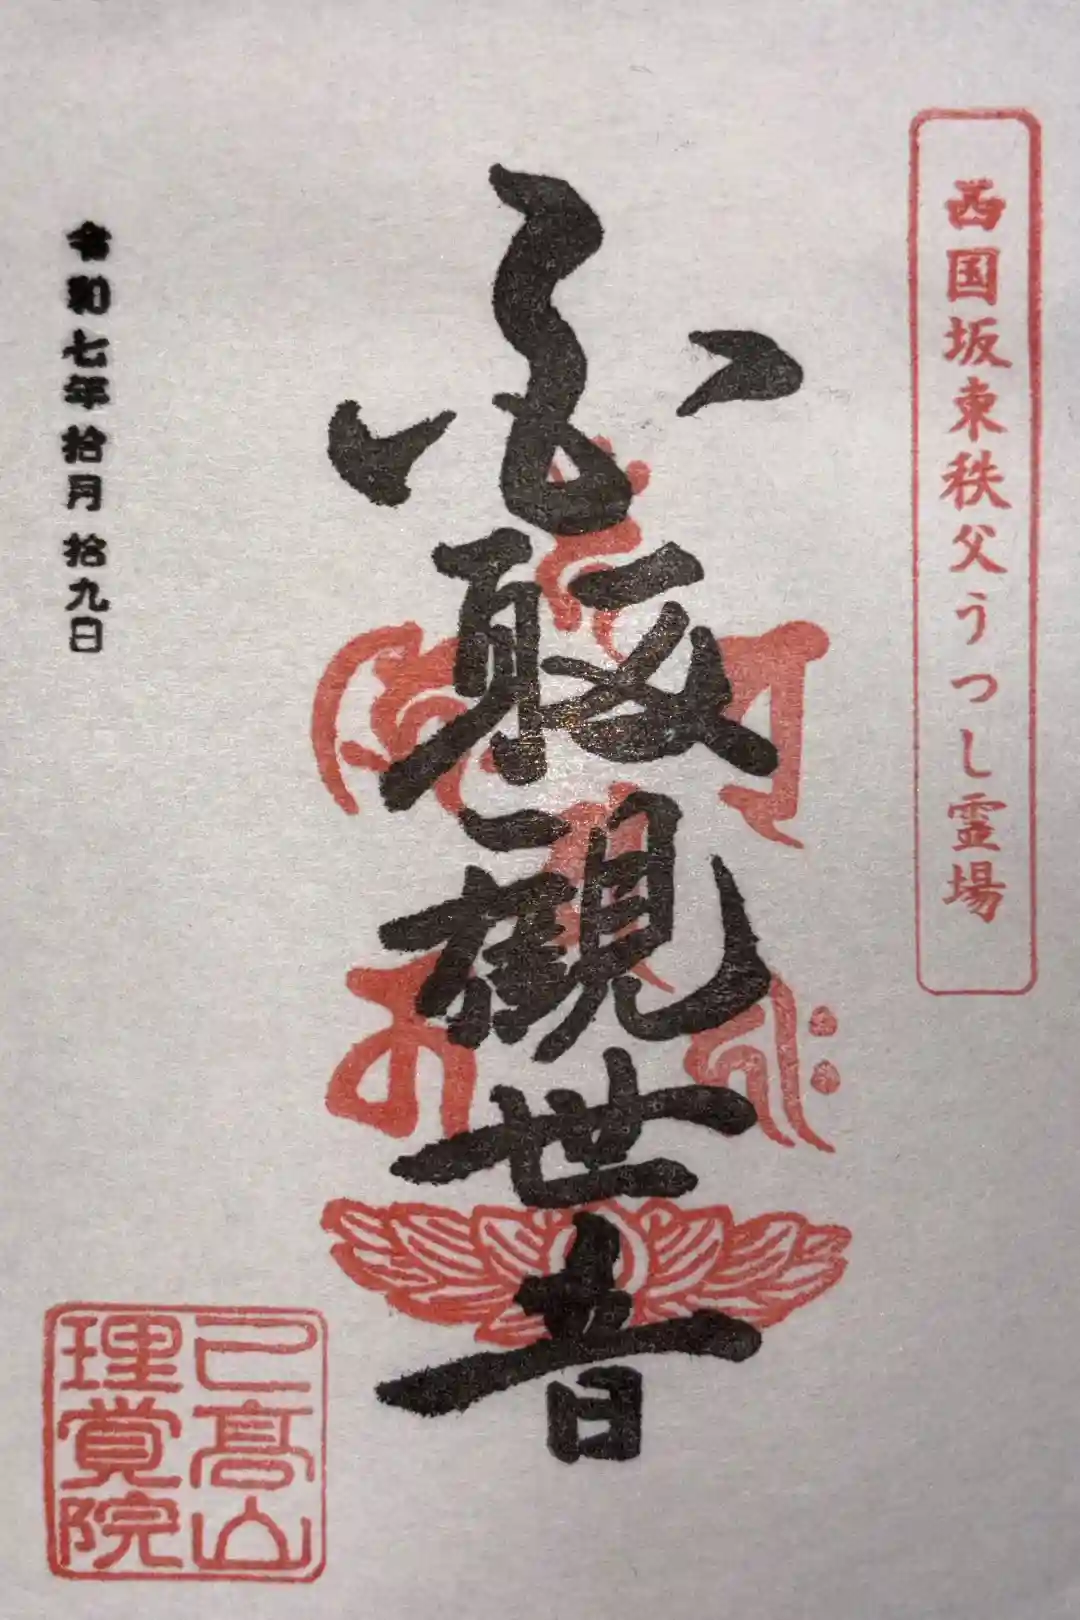 西国坂東秩父うつし霊場
観世音
令和七年拾月拾九日
己髙山
理覚院